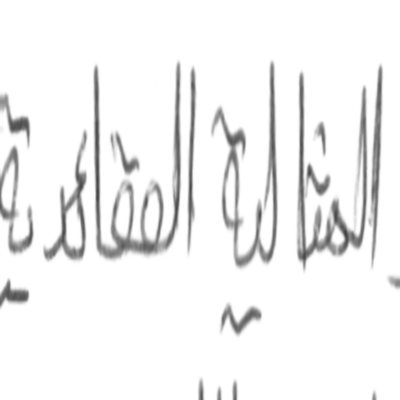 المثالية العقائدية